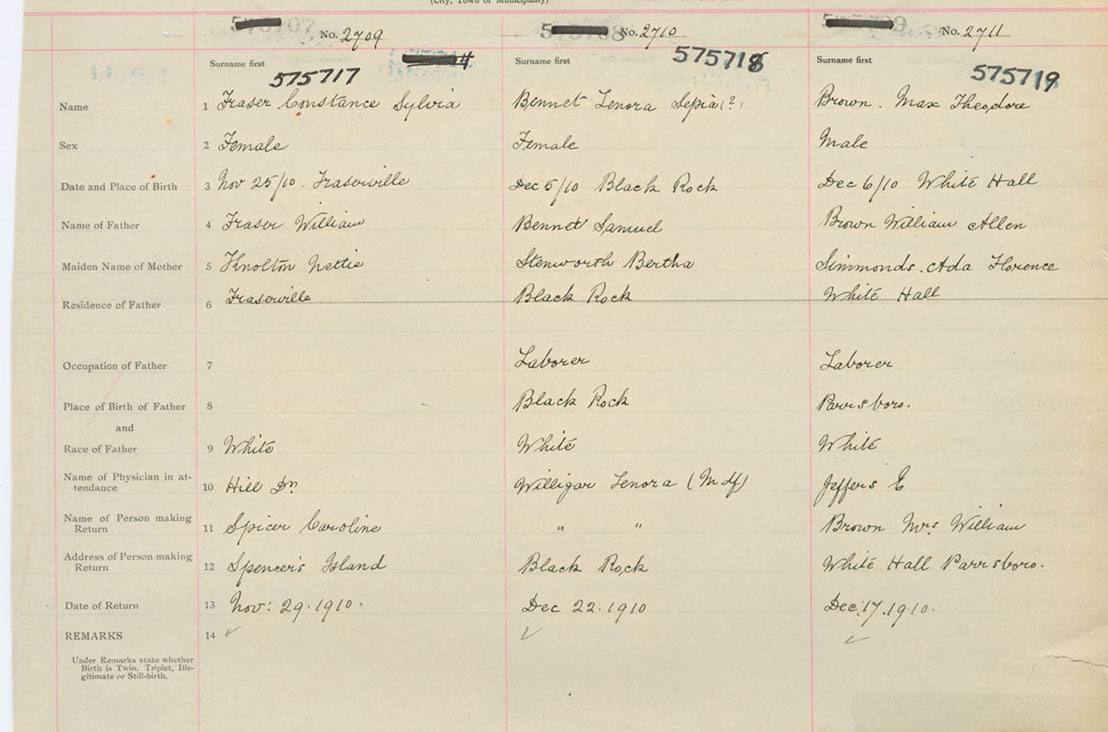 (City, Town or Municipality)
No. 2709 No. 2710 No. 2711
Surname first Surname first Surname first
575717 575718 575719
Name 1 Fraser Constance Sylvia Bennet Lenora Sepia (?) Brown. Max Theodore
Sex 2 Female Female Male
Date and Place of Birth 3 Nov 25/10. Fraserville Dec 5/10 Black Rock Dec 6/10 White Hall
Name of Father 4 Fraser William Bennet Samuel Brown William Allen
Maiden Name of Mother 5 Knolton Nettie Stenworth Bertha Simmonds. Ada Florence
Residence of Father 6 Fraserville Black Rock White Hall
Occupation of Father 7 Laborer Laborer
Place of Birth of Father 8 Black Rock Parrsboro.
and
Race of Father 9 White White White
Name of Physician in at-
tendance 10 Hill Dr Willigar Lenora (Mdf) Jeffers E
Name of Person making
Return 11 Spicer Caroline " " Brown Mrs William
Address of Person making
Return 12 Spencer's Island Black Rock White Hall Parrsboro.
Date of Return 13 Nov: 29.1910. Dec 22.1910 Dec.17.1910.
REMARKS 14 ✓ ✓ ✓
Under Remarks state whether
Birth is Twin, Triplet, Ille-
gitimate or Still-birth.